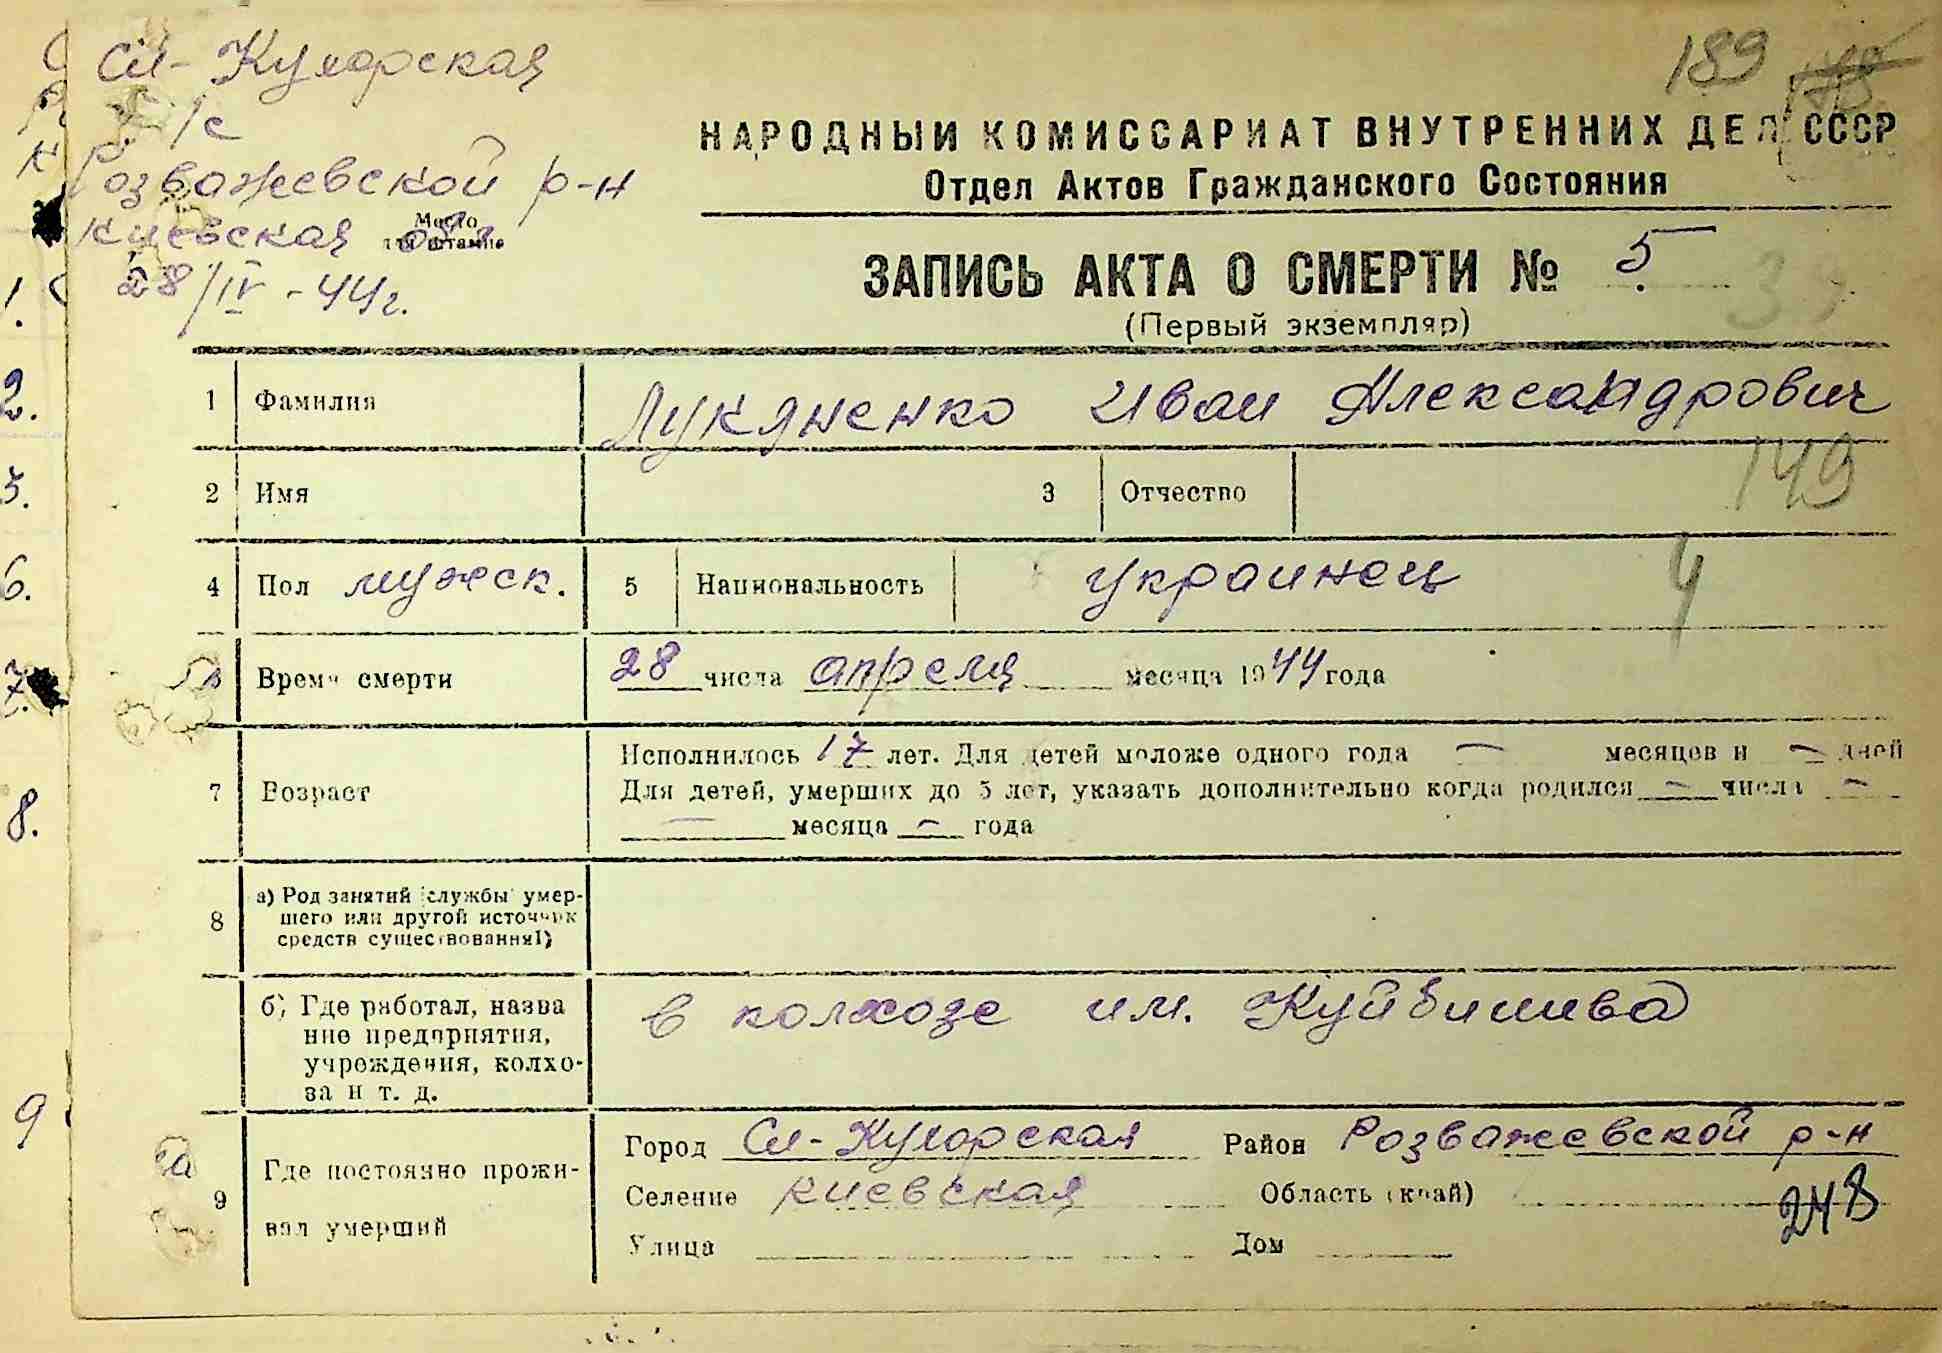 Сл-Кухарская
с/с
Розважевской р-н
Киевская обл.
Место
для штампа
28/IV-44г.
189
НАРОДНЫЙ КОМИССАРИАТ ВНУТРЕННИХ ДЕЛ СССР
Отдел Актов Гражданского Состояния
ЗАПИСЬ АКТА О СМЕРТИ № 5
(Первый экземпляр)
1 Фамилия Лукяненко Иван Александрович
2 Имя 3 Отчество
149
4 Пол мужск. 5 Национальность украинец
4
Время смерти 28 числа апреля месяца 1944 года
7 Возраст Исполнилось 17 лет. Для детей моложе одного года — месяцев и — дней
Для детей, умерших до 5 лет, указать дополнительно когда родился — числа —
— месяца — года
8 а) Род занятий (службы) умер-
шего или другой источник
средств существования1)
б) Где работал, назва
ние предприятия,
учреждения, колхо-
за и т. д.
в колхозе им. Куйбишива
9 Где постоянно прожи-
вал умерший
Город Сл-Кухарская Район Розважевской р-н
Селение Киевская Область (край)
248
Улица Дом
1.
2.
5.
6.
7.
8.
9